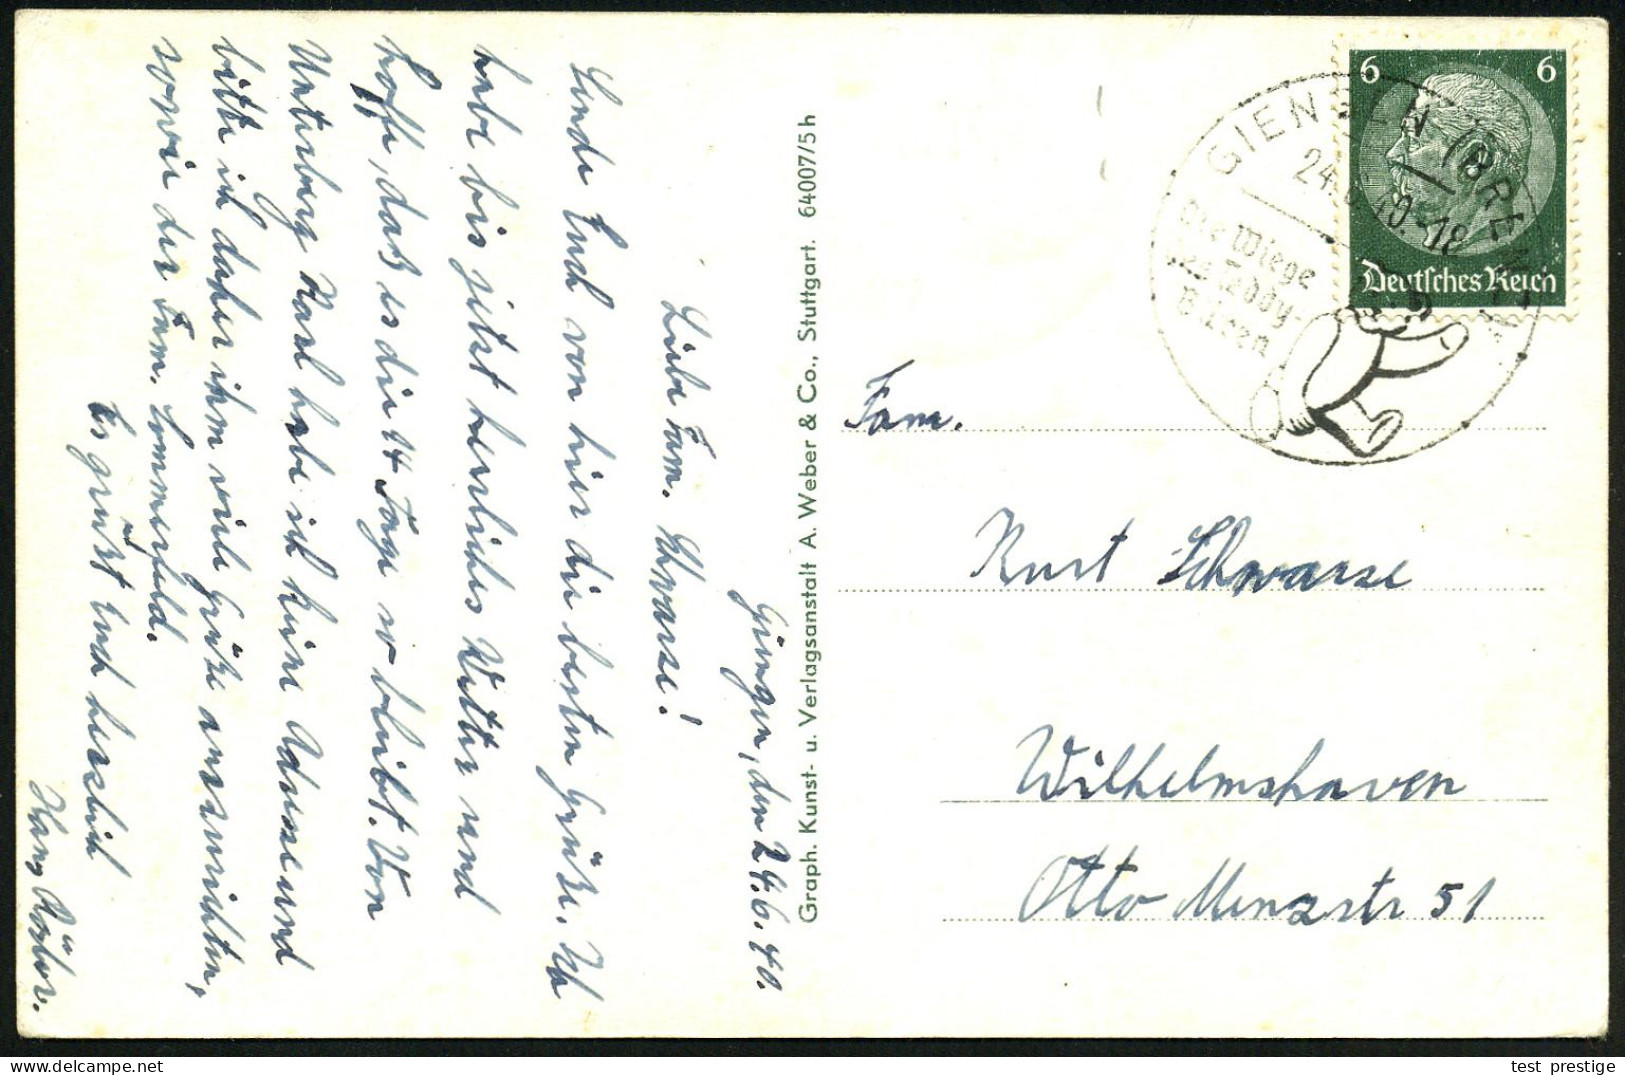 Giengen, den 24.6.40.
Liebe Fam. Schwarze!
Sende Euch von hier die besten Grüße. Ich
habe bis jetzt herrliches Wetter und
hoffe, daß es die 14 Tage so bleibt. Von
Unterberg Karl habe ich keine Adresse und
bitte ich daher ihm viele Grüße auszurichten,
sowie der Fam. Sommerfeld.
Es grüßt Euch herzlich
Hans
Graph. Kunst- u. Verlagsanstalt A. Weber & Co., Stuttgart. 64007/5h
GIENGEN (BRENZ)
24. 6. 40.-18
Die Wiege
der Teddy-
Bären
6 6
Deutsches Reich
Fam.
Kurt Schwarze
Wilhelmshaven
Otto Menzstr 51
test_prestige